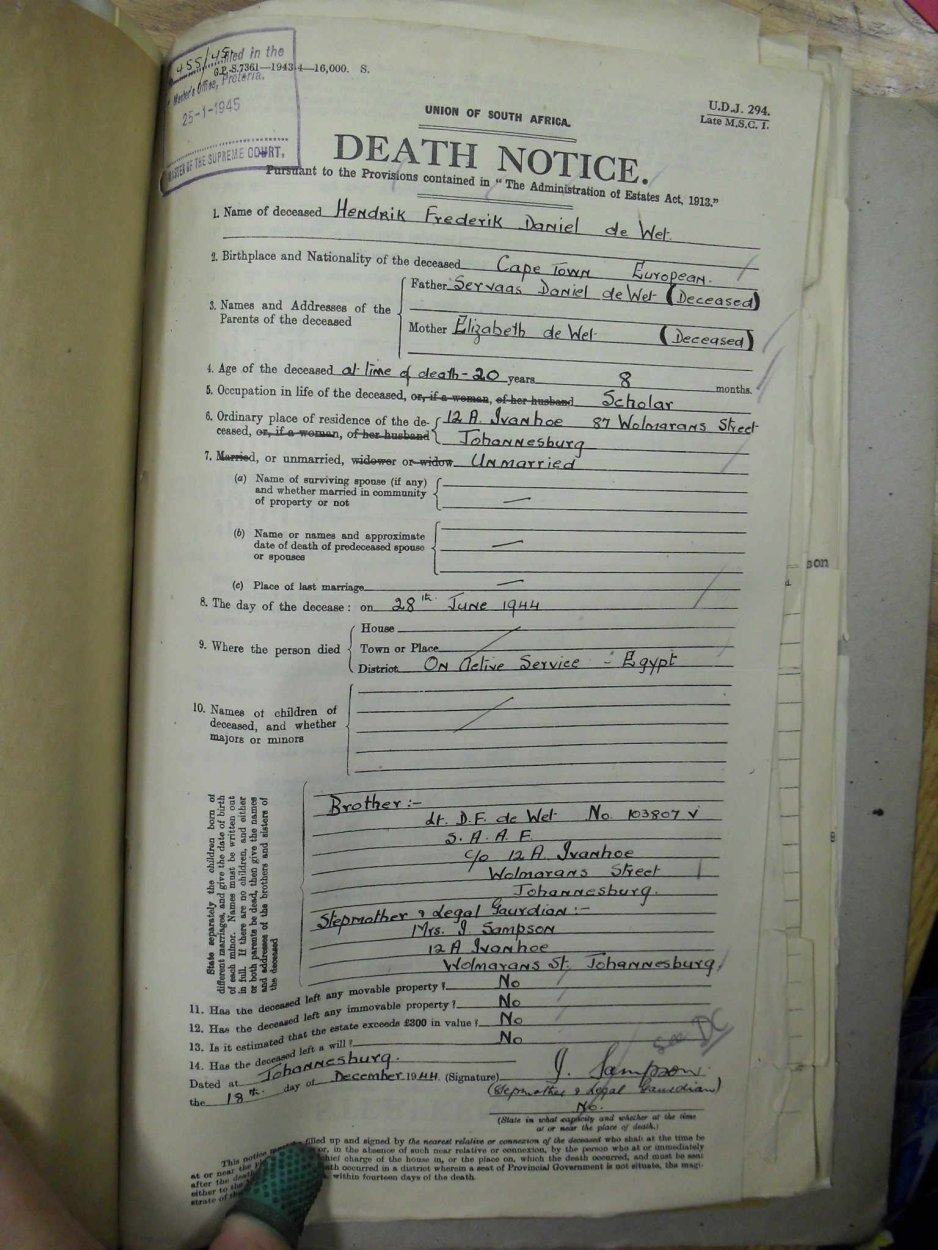 455/45 Filed in the
Master's Office, Pretoria.
25-1-1945
MASTER OF THE SUPREME COURT.
G.P.-S.7361—1943-4—16,000. S.
U.D.J. 294.
Late M.S.C. 1.
UNION OF SOUTH AFRICA.
DEATH NOTICE.
Pursuant to the Provisions contained in "The Administration of Estates Act, 1913."
1. Name of deceased Hendrik Frederik Daniel de Wet.
2. Birthplace and Nationality of the deceased Cape Town European.
3. Names and Addresses of the Parents of the deceased
Father Servaas Daniel de Wet (Deceased)
Mother Elizabeth de Wet (Deceased)
4. Age of the deceased at time of death - 20 years 8 months.
5. Occupation in life of the deceased, or, if a woman, of her husband Scholar
6. Ordinary place of residence of the de- 12 A. Ivanhoe 87 Wolmarans Street
ceased, or, if a woman, of her husband Johannesburg
7. Married, or unmarried, widower or widow Unmarried
(a) Name of surviving spouse (if any)
and whether married in community
of property or not
(b) Name or names and approximate
date of death of predeceased spouse
or spouses
(c) Place of last marriage
8. The day of the decease: on 28th June 1944
9. Where the person died
House
Town or Place
District On Active Service - Egypt
10. Names of children of
deceased, and whether
majors or minors
State separately the children born of
different marriages, and give the date of birth
of each minor. Names must be written out
in full. If there are no children, and either
or both parents be dead, then give the names
and addresses of the brothers and sisters of
the deceased
Brother :-
Lt. D.F. de Wet No. 103807 V
S.A.A.F.
c/o 12 A Ivanhoe
Wolmarans Street
Johannesburg.
Stepmother & Legal Gaurdian :-
Mrs. J Sampson
12 A Ivanhoe
Wolmarans St. Johannesburg.
11. Has the deceased left any movable property? No
12. Has the deceased left any immovable property? No
13. Is it estimated that the estate exceeds £300 in value? No
14. Has the deceased left a will? No
see DC
Dated at Johannesburg.
the 18th day of December 1944 (Signature) J. Sampson.
(Stepmother & Legal Gaurdian)
No.
(State in what capacity and whether at the time
or near the place of death.)
This notice filled up and signed by the nearest relative or connexion of the deceased who shall at the time be
at or near the or, in the absence of such near relative or connexion, by the person who at or immediately
after the death chief charge of the house in, or the place on, which the death occurred, and must be sent
either to the death occurred in a district wherein a seat of Provincial Government is not situate, the magi-
strate of within fourteen days of the death
son